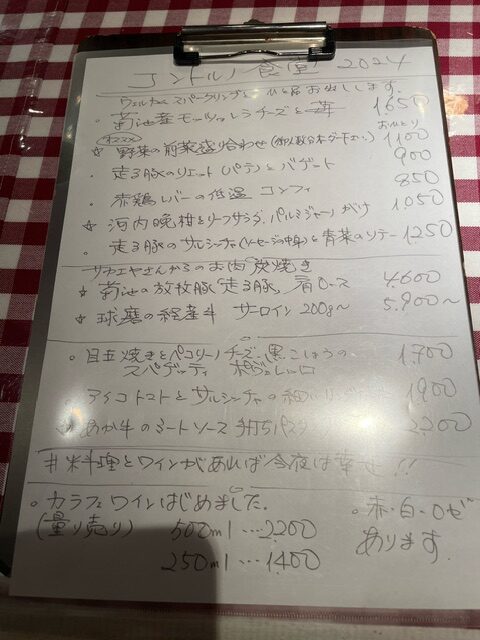 コントルノ食堂 2024
ウェルカムスパークリングと 一品お出しします。
・菊池産モッツァレラチーズと 1,650
おひとり
オススメ
☆ 野菜の前菜盛り合わせ 1100
・走る豚のリエット(パテ)と バゲット 900
・赤鶏レバーの低温 コンフィ 850
☆ 河内晩柑とリーフサラダ、パルミジャーノがけ 1050
・走る豚のサルシッチャ(ソーセージの中身)と青菜のソテー 1250
サカエヤさんからのお肉 炭焼き
☆ 菊池の放牧豚「走る豚」肩ロース 4,600
☆ 球磨の経産牛 サーロイン 200g〜 5,900〜
・目玉焼きとペコリーノチーズ、黒こしょうの 1,700
スパゲッティ ポヴェレッロ
・アイコトマトとサルシーチャの 1900
あか牛のミートソース 手打ちパスタ 2,200
#料理とワインがあれば今夜は幸せ!!
・カラフェワインはじめました。
(量り売り) 500ml …2200
250ml …1400
・赤・白・ロゼ
あります。